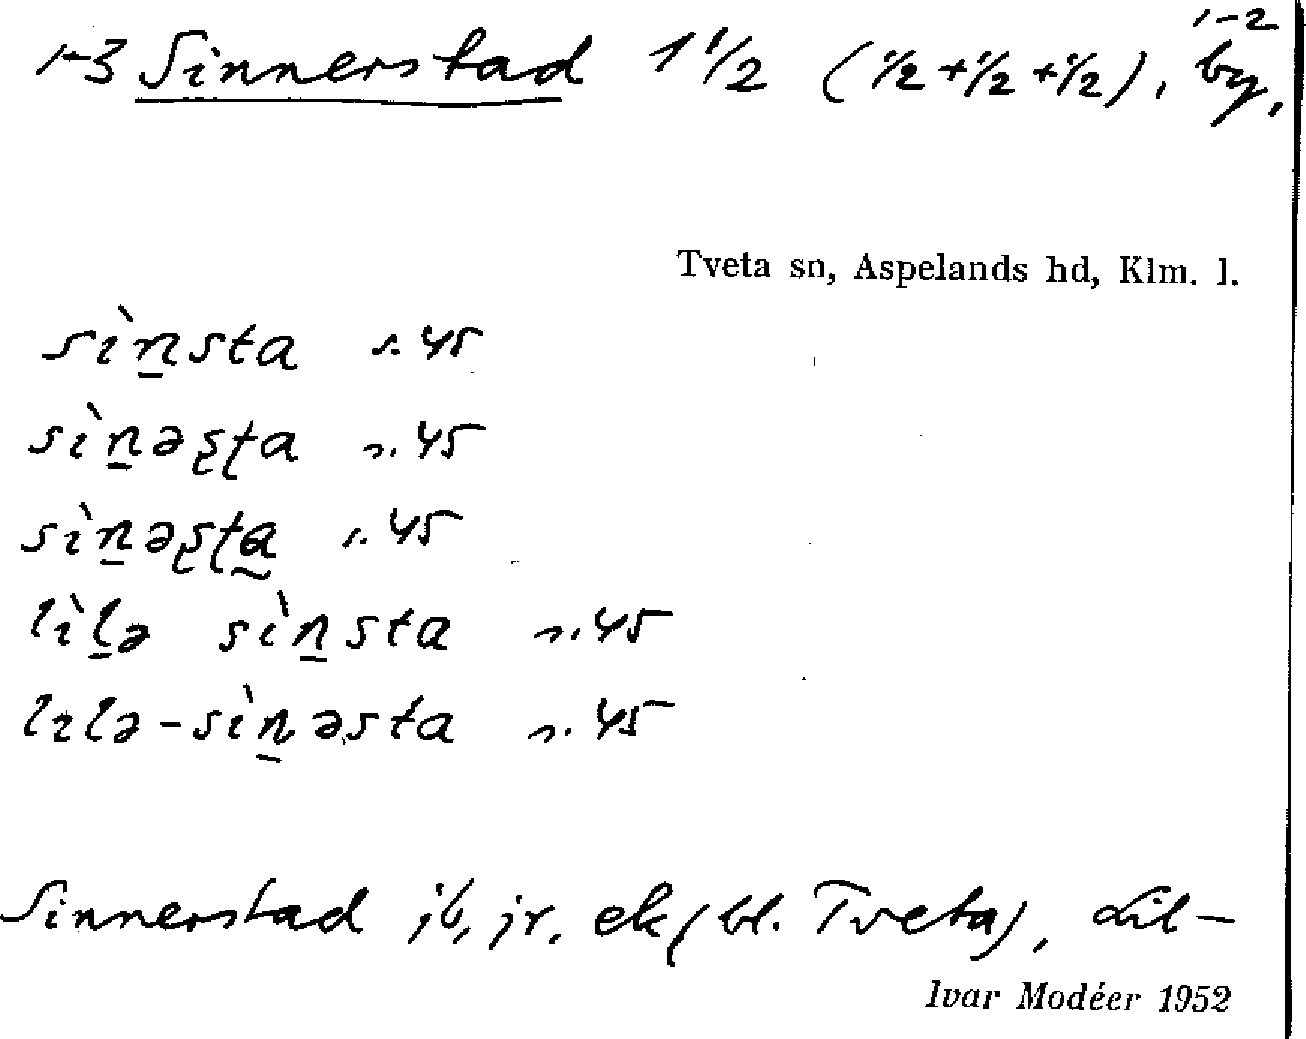 1-2
1-3 Sinnerstad 1 1/2 (1/2 + 1/2 + 1/2), by,
Tveta sn, Aspelands hd, Klm. l.
sìn̲sta s. 45
sìn̲əʂʈa s. 45
sìn̲əʂʈa̰ s. 45
lìl̲ə sìn̲sta s. 45
lɩlə-sìn̲əsta s. 45
Sinnerstad jb, jr. ek (bl. Tveta), Lil-
Ivar Modéer 1952